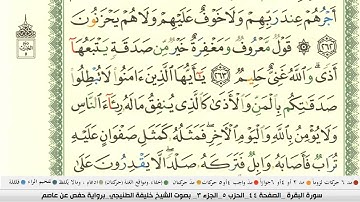 أَجْرُهُمْ عِندَ رَبِّهِمْ وَلَا خَوْفٌ عَلَيْهِمْ وَلَا هُمْ يَحْزَنُونَ
٢٦٢ ۞ قَوْلٌ مَّعْرُوفٌ وَمَغْفِرَةٌ خَيْرٌ مِّن صَدَقَةٍ يَتْبَعُهَآ
أَذًى وَٱللَّهُ غَنِىٌّ حَلِيمٌ ٢٦٣ يَٰٓأَيُّهَا ٱلَّذِينَ ءَامَنُوا۟ لَا تُبْطِلُوا۟
صَدَقَٰتِكُم بِٱلْمَنِّ وَٱلْأَذَىٰ كَٱلَّذِى يُنفِقُ مَالَهُۥ رِئَآءَ ٱلنَّاسِ
وَلَا يُؤْمِنُ بِٱللَّهِ وَٱلْيَوْمِ ٱلْءَاخِرِ فَمَثَلُهُۥ كَمَثَلِ صَفْوَانٍ عَلَيْهِ
تُرَابٌ فَأَصَابَهُۥ وَابِلٌ فَتَرَكَهُۥ صَلْدًا لَّا يَقْدِرُونَ عَلَىٰ
سورة البقرة . الصفحة ٤٤ . الحزب ٥ . الجزء ٣ . بصوت الشيخ خليفة الطنيجي . برواية حفص عن عاصم